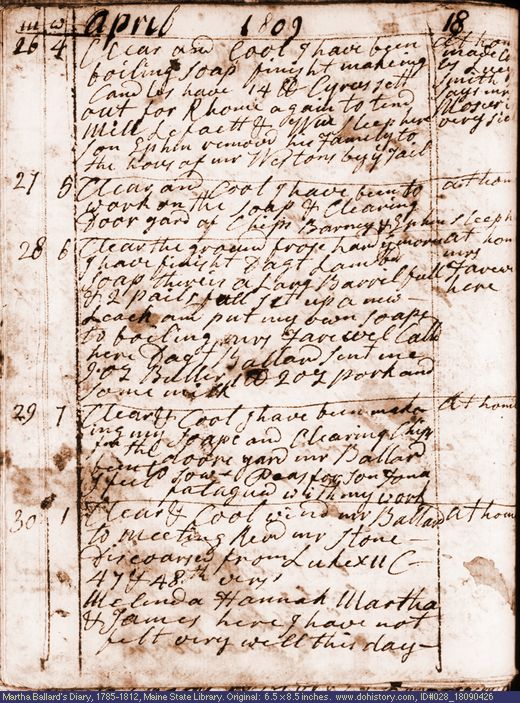 m w April 1809 18
26 4 Clear and Cool I have been at home
boiling soap finisht making made Ca
Candles have 14 lb Cyrus sett
out for Rhome again to tend
Mill Lefaett &
son Ephm removd his Family to
the hous of mr Westons by y Jail
27 5 Clear and Cool I have been to at hom
work on the soap & Clearing
Door yard of Chips Barney & Ephm sleep h
28 6 Clear the ground froze hard y morn at hom
I have finisht Dagt Lambd mrs
soap there is a Larg Barril full Farewe
& 2 pails full set up a new here
Leach and put my own soape
to boiling mrs Farewel Calld
here Dagt Ballard sent me
20 oz pork and
some milk
29 7 Clear & Cool I have been make at home
ing my soape and Clearing Chips
from the doore yard mr Ballard
been to sow Peas for son Jona
I feel fatagud with my work
30 1 Clear & Cool wind mr Ballard at hom
to meeting Revd mr Stone
discoarst from Luke XII C
47 & 48th very
Melinda Hannah Martha
& James here I have not
felt very well this day
Martha Ballard's Diary, 1785-1812, Maine State Library. Original: 6.5 x 8.5 inches. www.dohistory.com, ID#028_18090426